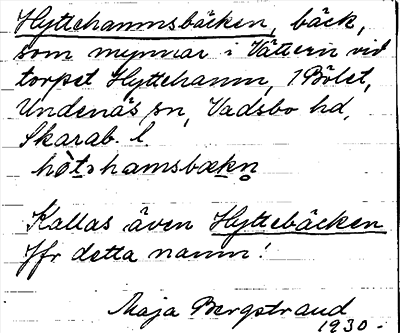 Hyttehamnsbäcken, bäck,
som mynnar i Vättern vid
torpet Hyttehamn, 1 Bölet,
Undenäs sn, Vadsbo hd,
Skarab. l
Kallas även Hyttebäcken
Jfr detta namn!
Maja Bergstrand
1930.